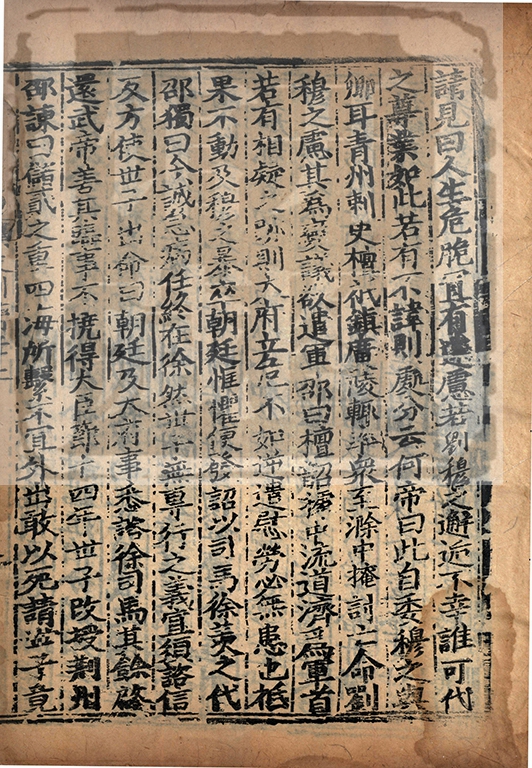 請見曰人生危脆宜有遠慮若劉穆之邂逅不幸誰可代
之尊業如此若有不諱則處分云何帝曰此自委穆之與
卿耳青州刺史檀祗鎮廣陵輒率衆至滁中掩討亡命劉
穆之慮其爲變議欲遣軍邵曰檀韶據中流道濟爲軍首
若有相疑之跡則大府立危不如逆遣慰勞必無患也祗
果不動及穆之暴卒朝廷恇懼便發詔以司馬徐羨之代
邵獨曰今誠急病任終在徐然世子無專行之義宜須諮信
反方使世子出命曰朝廷及大府事悉諮徐司馬其餘啓
還武帝善其臨事不撓得大臣節十四年世子改授荆州
邵諫曰儲貳之重四海所繫不宜外出敢以死請世子竟